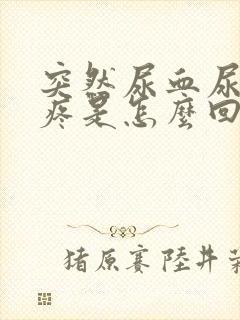 突然尿血尿
疼是怎麼回
猪原赛陸井